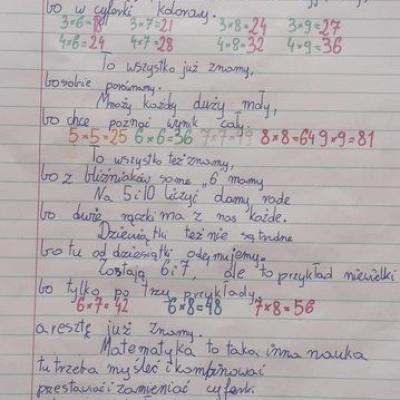 bo w cyferki kolorazy.
3×6=18 3×7=21 3×8=24 3×9=27
4×6=24 4×7=28 4×8=32 4×9=36
To wszystko już znamy,
bo sobie porównamy.
Mnoży każdy duży mały,
bo chce poznać wynik cały.
5×5=25 6×6=36 7×7=49 8×8=64 9×9=81
To wszystko też znamy,
bo z bliźniaków same "6 mamy
Na 5 i 10 liczyć damy rade
bo dwie rączki ma z nas każde.
Dziewiątki też nie są trudne
bo tu od dziesiątki odejmujemy.
Zostają 6 i 7, ale to przykład niewielki
bo tylko po trzy przykłady.
6×7=42 6×8=48 7×8=56
a resztę już znamy.
Matematyka to taka inna nauka
tu trzeba myśleć i kombinować
przestawiać i zamieniać cyferki